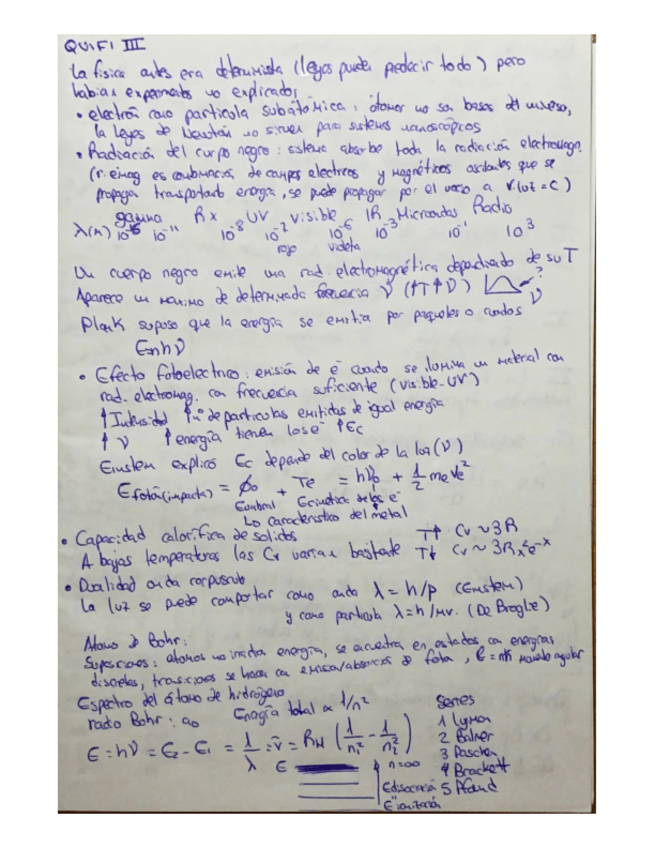 QUIFI III
La física antes era determinista (leyes pueden predecir todo) pero
habían experimentos no explicados
• electrón como partícula subatómica: átomos no son bases del universo,
la leyes de Newton no sirven para sistemas nanoscópicos
• Radiación del cuerpo negro: sistema absorbe toda la radiación electromagn.
(r. elmag es combinación de campos electricos y magnéticos oscilantes que se
propaga transportando energía, se puede propagar por el vacío a v(luz = c)
gamma RX UV visible IR Microondas Radio
λ(m) 10⁻¹¹ 10⁻⁸ 10⁻⁷ 10⁻⁶ 10⁻³ 10⁻¹ 10³
rojo violeta
Un cuerpo negro emite una rad. electromagnética dependiendo de su T
Aparece un máximo de determinada frecuencia ν (↑T↑ν) ? ν
Plank supuso que la energía se emitía por paquetes o cuantos
E=nhν
• Efecto fotoelectrico: emisión de e⁻ cuando se ilumina un material con
rad. electromag. con frecuencia suficiente (visible-UV)
↑ Intensidad ↑nº de partículas emitidas de igual energía
↑ ν ↑ energía tienen los e⁻ ↑Ec
Einstein explicó Ec depende del color de la luz (ν)
E fotón(impacta) = ϕ₀ + Te = hν₀ + 1/2 me ve²
Eumbral Ecinética de los e⁻
Lo característico del metal
• Capacidad calorífica de solidos T↑ Cv ~ 3R
A bajas temperaturas las Cv varían bastante T↓ Cv ~ 3Rx²e⁻ˣ
• Dualidad onda corpusculo
La luz se puede comportar como onda λ = h/p (Einstein)
y como partícula λ = h/mv. (De Broglie)
Atomo de Bohr:
Suposiciones: átomos no irradia energía, se encuentra en estados con energías
discretas, transiciones se hacen con emisión/absorción de fotón, ℓ = nħ momento angular
Espectro del átomo de hidrógeno
radio Bohr: a₀ Energía total ∝ 1/n²
E = hν = E₂ - E₁ = 1/λ = ν̃ = R_H (1/n² - 1/n₂²)
Series
1 Lyman
2 Balmer
3 Paschen
4 Brackett
5 Pfund
E n=∞
Edisociación
E ionización